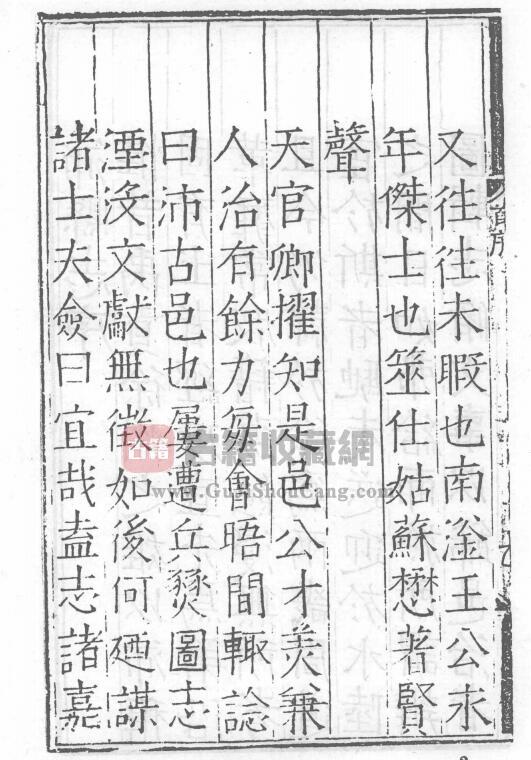 又往往未暇也南滏王公永
年傑士也筮仕姑蘇懋著賢
聲
天官卿擢知是邑公才羙兼
人治有餘力每會晤間輒諗
曰沛古邑也屢遭兵燹圖志
湮没文獻無徵如後何廼謀
諸士夫僉曰宜哉盍志諸嘉
古籍
古籍收藏網
www.GujiShouCang.com